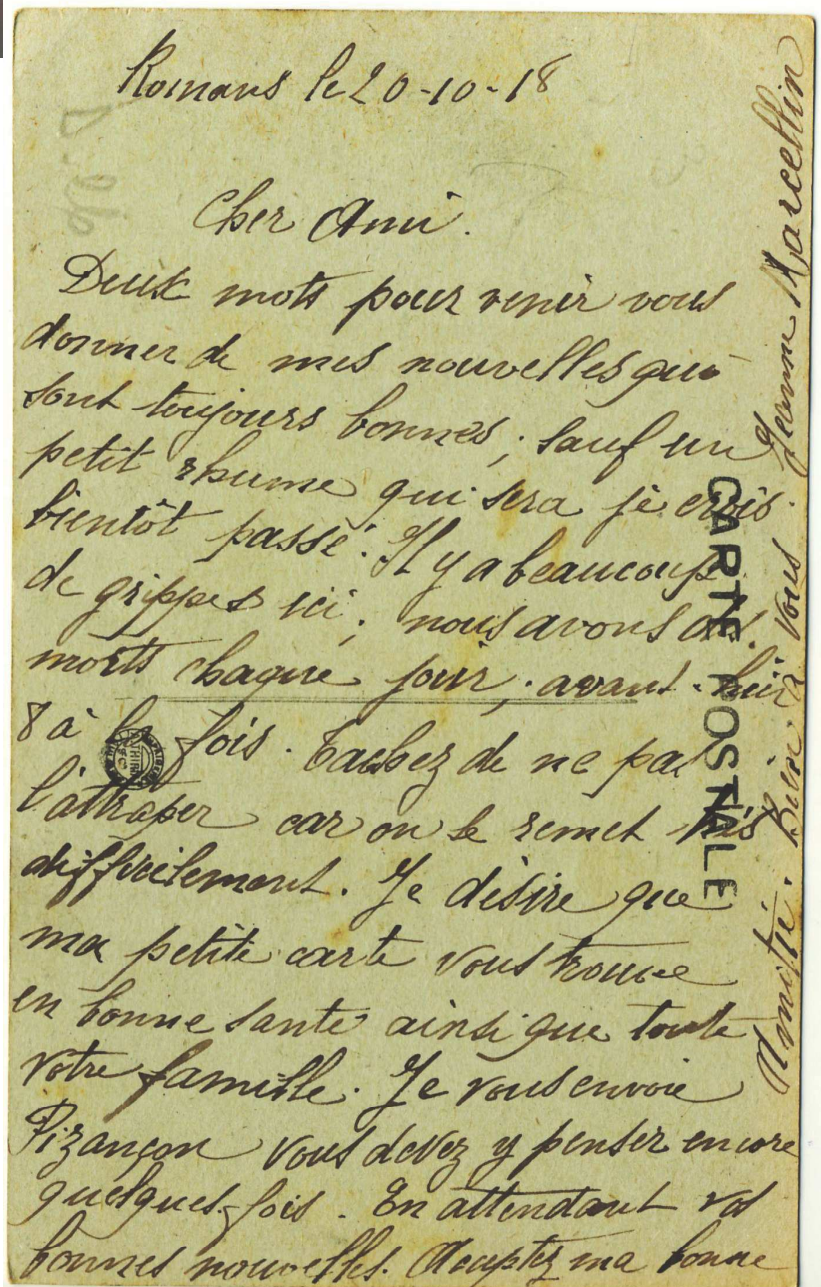 Romans le 20-10-18
Cher Ami.
Deux mots pour venir vous
donner de mes nouvelles qui
sont toujours bonnes ; sauf un
petit rhume qui sera je crois
bientôt passé. Il y a beaucoup
de grippes ici ; nous avons des
morts chaque jour ; avant-hier
8 à la fois. Tachez de ne pas
l'attraper car on se remet très
difficilement. Je désire que
ma petite carte vous trouve
en bonne santé ainsi que toute
votre famille. Je vous envoie
Pizançon vous devez y penser encore
quelques fois. En attendant vos
bonnes nouvelles. Acceptez ma bonne
Amitié. Bien à vous. Jeanne Marcellin
CARTE POSTALE